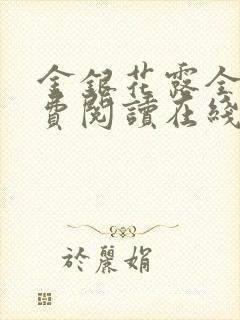 金銀花露全
費閱讀在綫
於麗娟